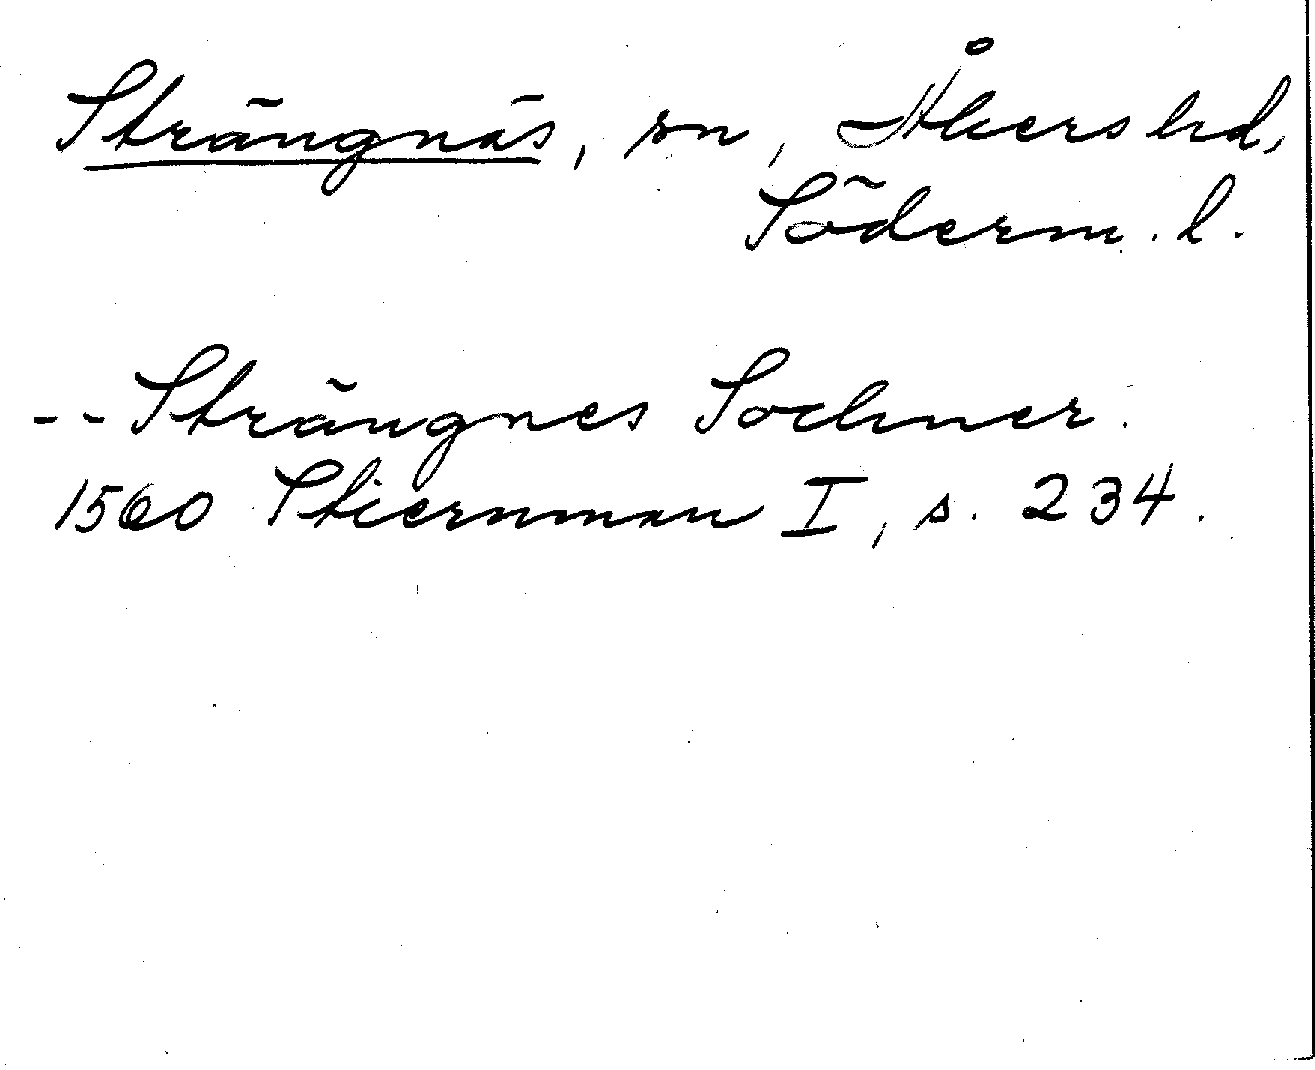 Strängnäs, sn, Åkers hd,
Söderm. l.
-- Strängnes Sochner.
1560 Stiernman I, s. 234.